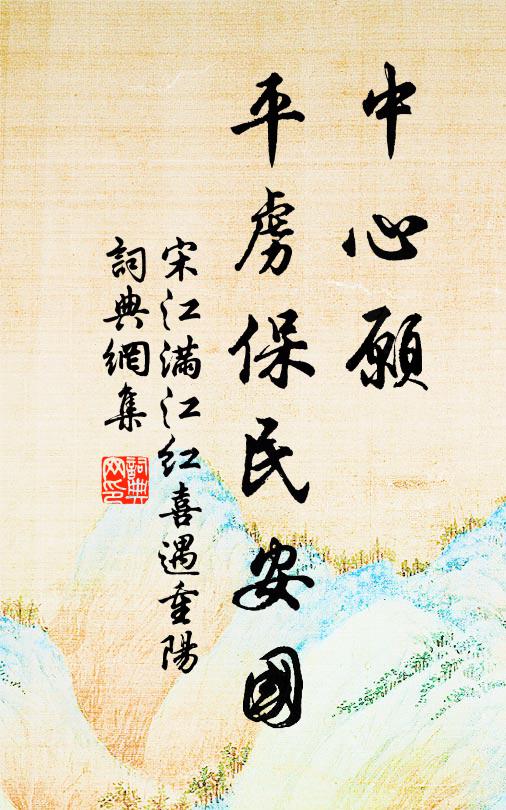 中心願
平虜保民安國
宋江满江红喜遇重陽
詞典網集
詞典网印